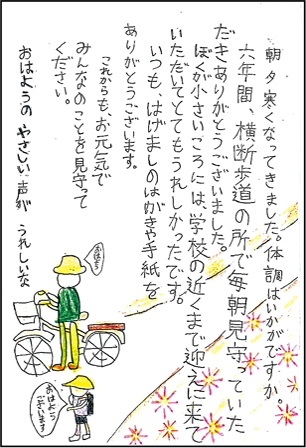 朝夕寒くなってきました。体調はいかがですか。
六年間、横断歩道の所で毎朝見守っていた
だきありがとうございました。
ぼくが小さいころには、学校の近くまで迎えに来て
いただいてとてもうれしかったです。
いつも、はげましのはがきや手紙を
ありがとうございます。
これからも、お元気で
みんなのことを見守って
ください。
おはようの やさしい声が うれしいな
おはよう
おはよう
ございます